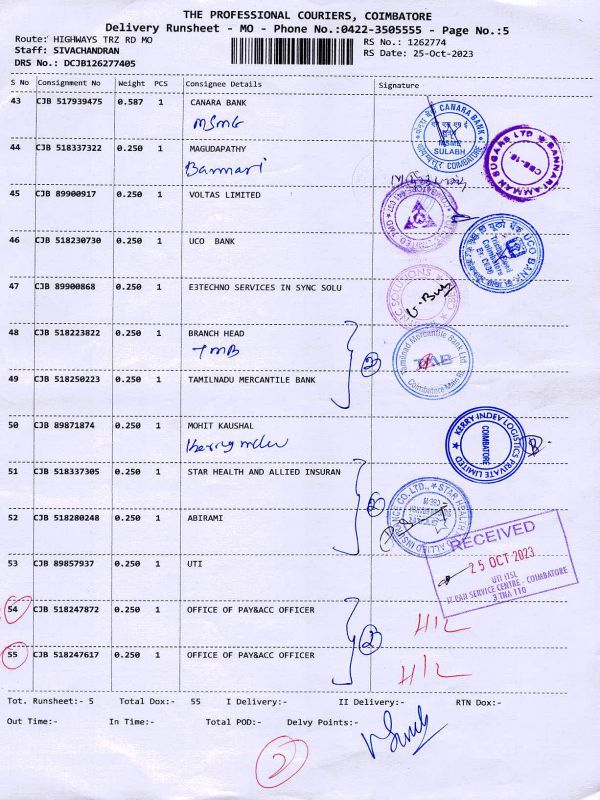 THE PROFESSIONAL COURIERS, COIMBATORE
Delivery Runsheet - MO - Phone No.:0422-3505555 - Page No.:5
Route: HIGHWAYS TRZ RD MO
RS No.: 1262774
Staff: SIVACHANDRAN
RS Date: 25-Oct-2023
DRS No.: DCJB126277405
S No Consignment No Weight PCS Consignee Details Signature
43 CJB 517939475 0.587 1 CANARA BANK
MSME
CANARA BANK
MSME
SULABH
COIMBATORE
44 CJB 518337322 0.250 1 MAGUDAPATHY
Bannari
BANNARI AMMAN SUGARS LTD
CBE-18
45 CJB 89900917 0.250 1 VOLTAS LIMITED
46 CJB 518230730 0.250 1 UCO BANK
UCO BANK
Trichy Road
Coimbatore
47 CJB 89900868 0.250 1 E3TECHNO SERVICES IN SYNC SOLU
SOLUTIONS
48 CJB 518223822 0.250 1 BRANCH HEAD
TMB
2
Tamilnad Mercantile Bank Ltd.
TMB
Coimbatore Main Br.
49 CJB 518250223 0.250 1 TAMILNADU MERCANTILE BANK
50 CJB 89871874 0.250 1 MOHIT KAUSHAL
Kerry indev
KERRY INDEV LOGISTICS PRIVATE LIMITED
COIMBATORE
51 CJB 518337305 0.250 1 STAR HEALTH AND ALLIED INSURAN
2
STAR HEALTH & ALLIED INSURANCE CO. LTD.,
52 CJB 518280248 0.250 1 ABIRAMI
53 CJB 89857937 0.250 1 UTI
RECEIVED
25 OCT 2023
UTI ITSL
PAN SERVICE CENTRE - COIMBATORE
54 CJB 518247872 0.250 1 OFFICE OF PAY&ACC OFFICER
H/L
2
55 CJB 518247617 0.250 1 OFFICE OF PAY&ACC OFFICER
H/L
Tot. Runsheet:- 5 Total Dox:- 55 I Delivery:- II Delivery:- RTN Dox:-
Out Time:- In Time:- Total POD:- Delvy Points:-
2